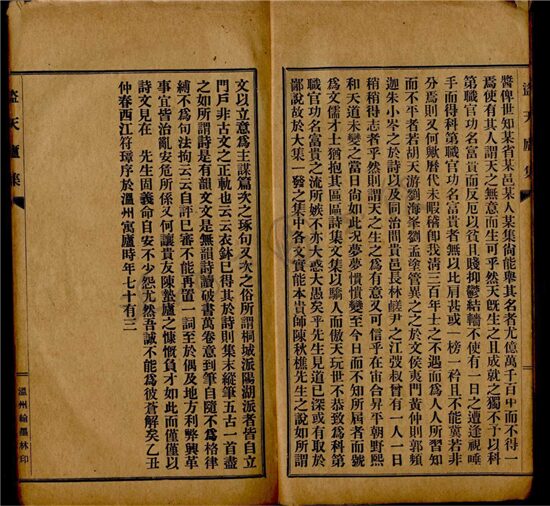 盜天廬集
醬俾世知某省某邑某人某集尙能舉其名者尤億萬千百中而不得一
焉使有其人謂天之無意而生可乎然天旣生之且成就之獨不予以科
第職官功名富貴而反厄以貧且賤抑鬱結轖不使有一日之遭逢視唾
手而得科第職官功名富貴者無以比肩甚或一榜一衿且不能冀若非
分焉則又何歟曆代未暇稽卽我淸三百年士之不遇而爲人人所習知
而不平者若胡天游劉海峯劉孟塗管異之之於文侯夷門黃仲則郭頻
迦朱小岑之於詩以及同治間貴邑長林㦤尹之江弢叔曾有一人一日
稍稍得志者乎然則謂天之生之爲有意又可信乎在宙合昇平朝野熙
和天道未變之當日尙如此況夢夢憒憒變至今日而不知所屆者而號
爲文儒才士猶抱其區區詩集文集以驕人而傲天玩世不恭致爲科第
職官功名富貴之流所嫉不亦大惑大愚矣乎先生見道已深或有取於
鄙說故於大集一發之集中各文實能本貴師陳秋樵先生之說如所謂
文以立意爲主謀篇次之琢句又次之俗所謂桐城派陽湖派者皆自立
門戶非古文之正軌也云云衣鉢已得其於詩則集末縱筆五古一首盡
之如所謂詩是有韻文文是無韻詩讀破書萬卷意到筆自隨不爲格律
縛不爲句法拘云云自評已審不能再置一詞至於偶及地方利弊興革
事宜皆治亂安危所係又何讓貴友陳蟄廬之慷慨負才如此而僅僅以
詩文見在　先生固義命自安不少怨尤然吾誠不能爲彼蒼解矣乙丑
仲春西江符璋序於溫州寓廬時年七十有三
盜天廬集
溫州翰墨林印